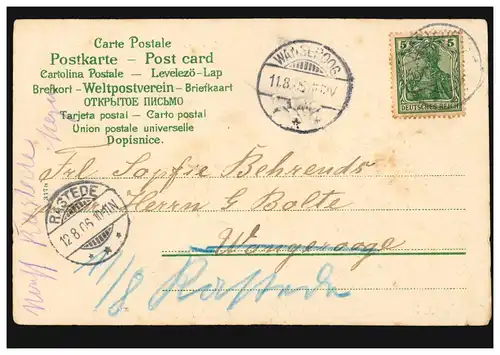 Carte Postale
Postkarte – Post card
Cartolina Postale – Levelező-Lap
Brefkort - Weltpostverein - Briefkaart
ОТКРЫТОЕ ПИСЬМО
Tarjeta postal – Carto postal
Union postale universelle
Dopisnice.
WANGEROOG
11.8.05
5 5
DEUTSCHES REICH
Frl. Sophie Behrends
Herrn G Bolte
Wangerooge
RASTEDE
12.8.05
11/8 Rastede
Rastede